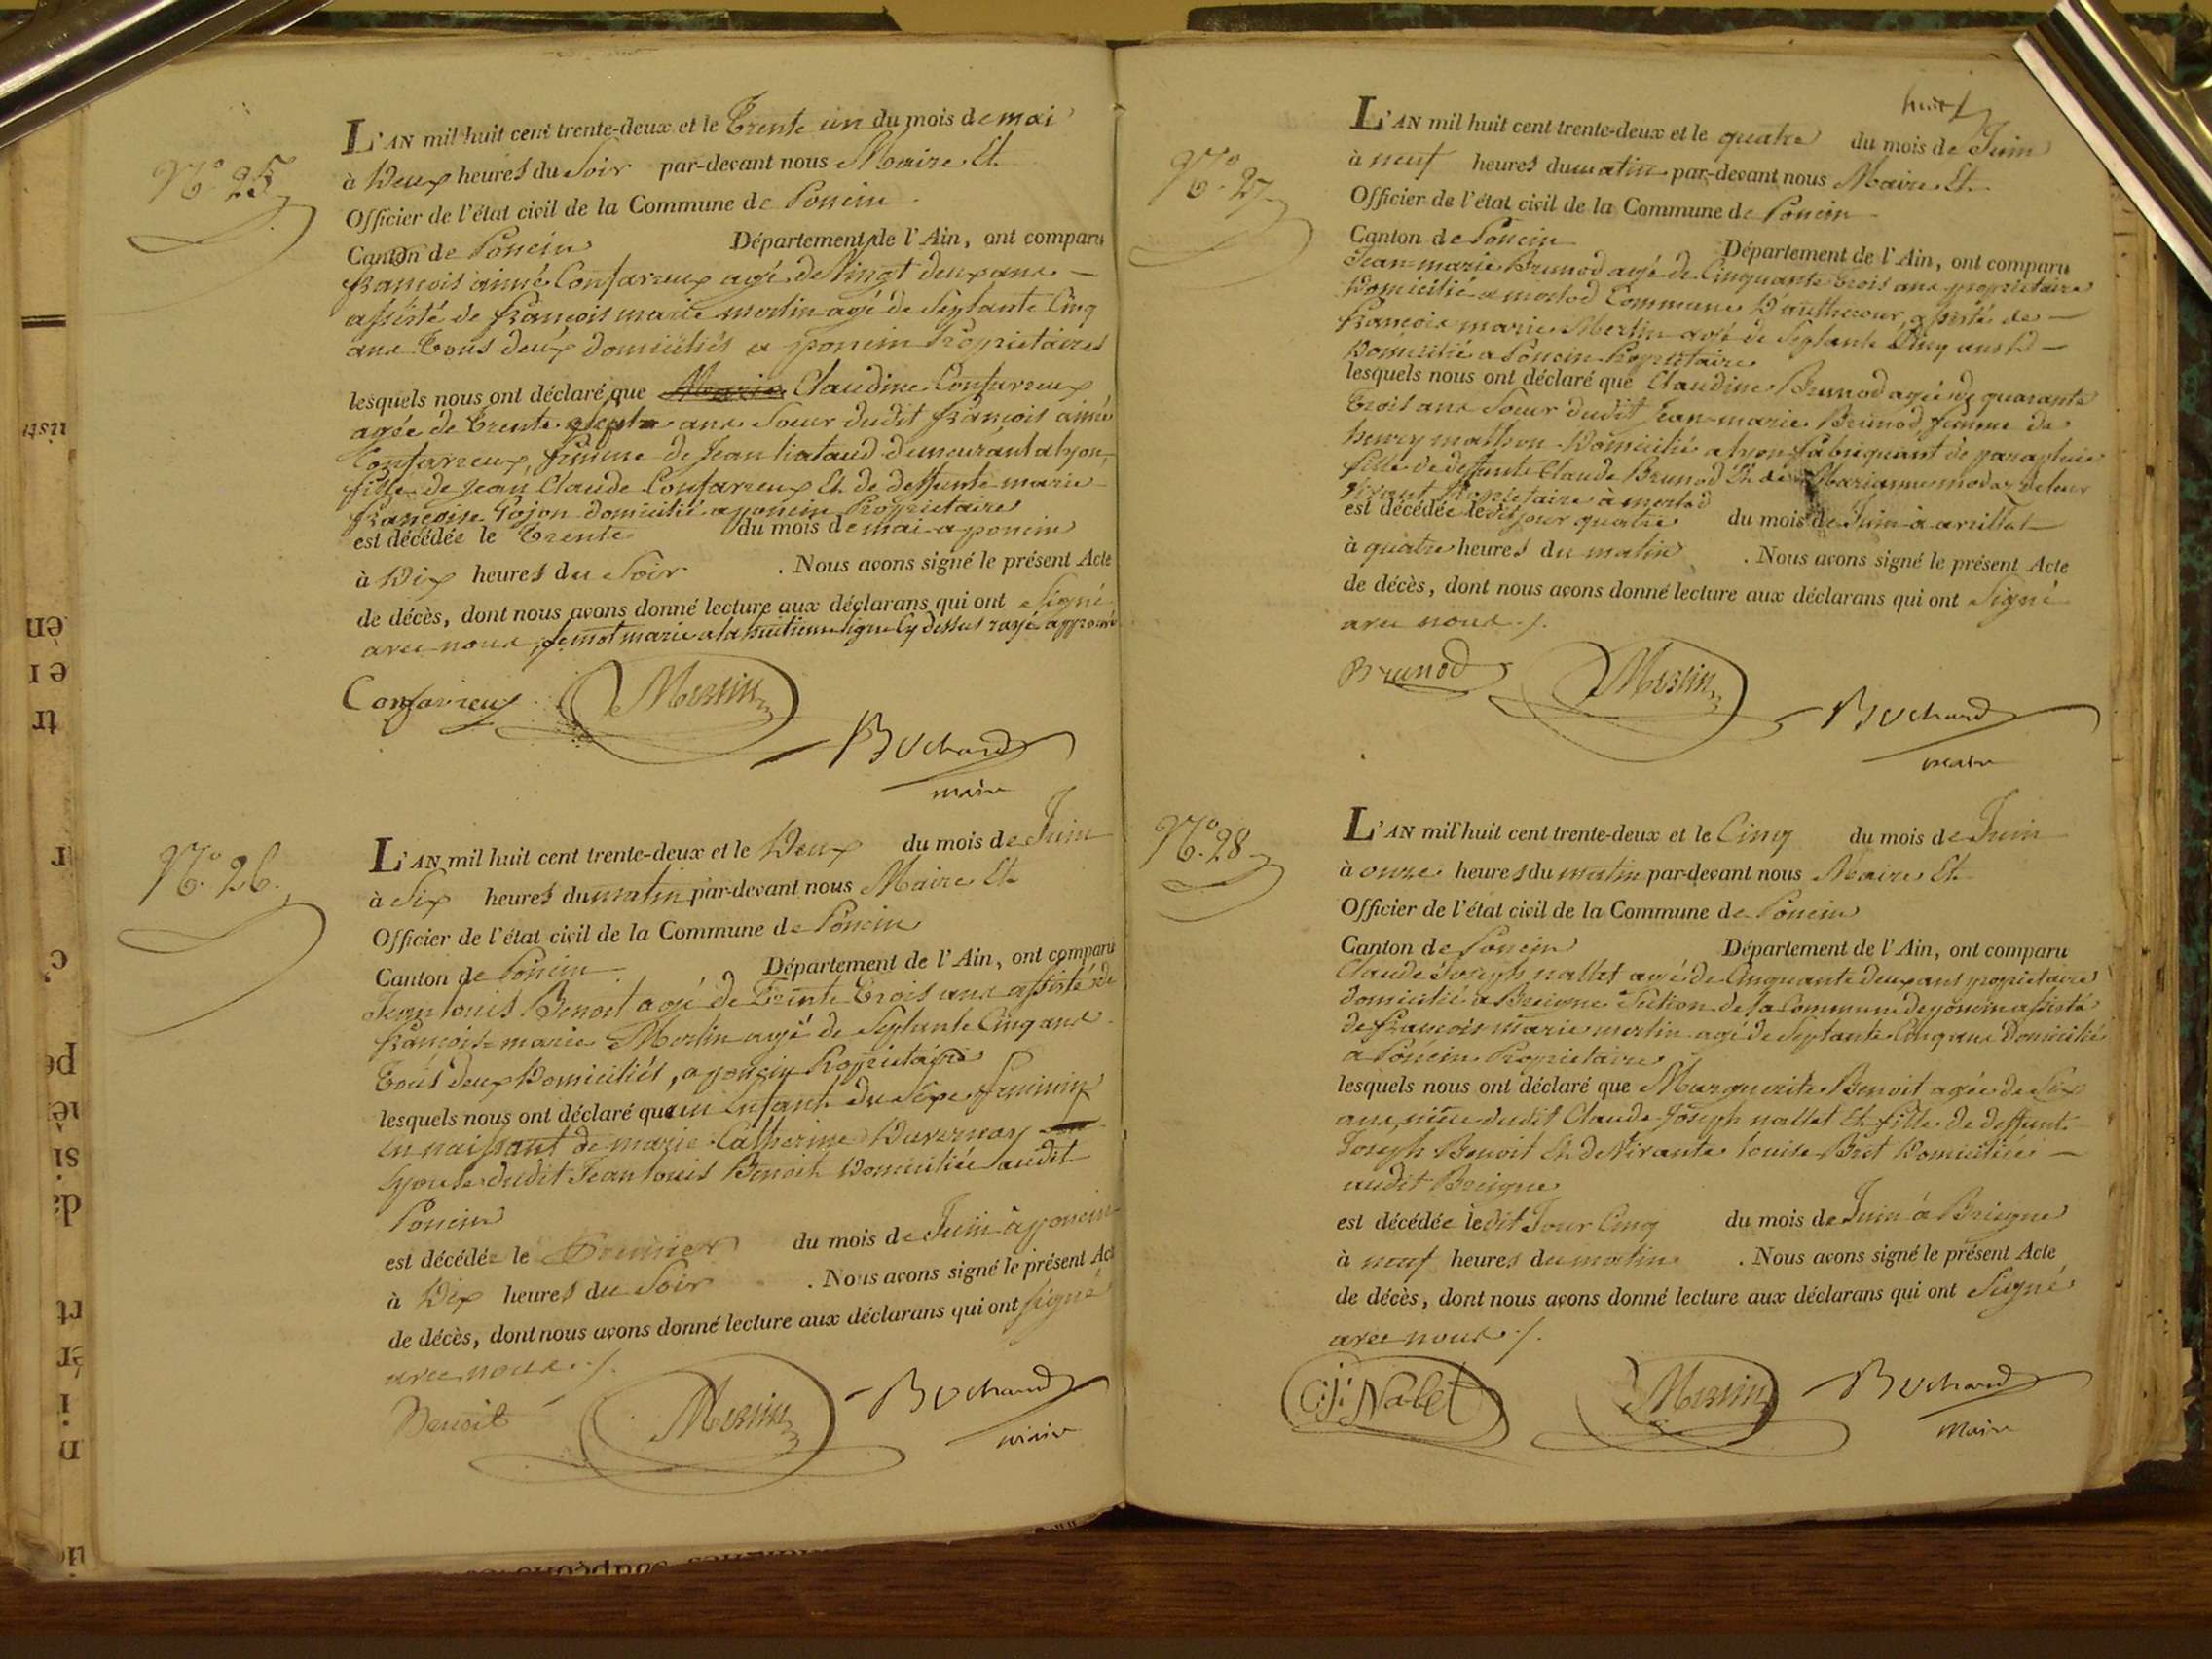 N.° 25
L'AN mil huit cent trente-deux et le Trente un du mois de mai
à Deux heures du Soir par-devant nous Maire Et
Officier de l'état civil de la Commune de Poncin
Canton de Poncin Département de l'Ain, ont comparu
françois aimé Confavreux agé de Vingt deux ans
assisté de françois marie merlin agé de Septante Cinq
ans Tous deux domiciliés a poncin Propriétaires
lesquels nous ont déclaré que Marie Claudine Confavreux
agée de Trente sept ans Soeur dudit françois aimé
Confavreux, femme de Jean liataud demeurant a lyon,
fille de Jean Claude Confavreux Et de deffunte marie
françoise Gojon domicilié a poncin Propriétaire
est décédée le Trente du mois de mai a poncin
à Dix heures du Soir . Nous avons signé le présent Acte
de décès, dont nous avons donné lecture aux déclarans qui ont Signé
avec nous, le mot marie a la huitieme ligne Cy dessus rayé approuvé
Confavreux Merlin
Bochard
maire
N.° 26.
L'AN mil huit cent trente-deux et le Deux du mois de Juin
à Six heures du matin par-devant nous Maire Et
Officier de l'état civil de la Commune de Poncin
Canton de Poncin Département de l'Ain, ont comparu
Jean louis Benoit agé de Trente Trois ans assisté de
françois-marie Merlin agé de Septante Cinq ans
Tous deux Domiciliés, a poncin Propriétaire
lesquels nous ont déclaré que un Enfant du Sexe feminin
En naissant de marie Catherine Duvernay
Epouse dudit Jean louis Benoit Domiciliée audit
Poncin
est décédée le Premier du mois de Juin à poncin
à Dix heures du Soir . Nous avons signé le présent Act
de décès, dont nous avons donné lecture aux déclarans qui ont Signé
avec nous ./.
Benoit Merlin Bochard
maire
huit
N.° 27
L'AN mil huit cent trente-deux et le quatre du mois de Juin
à neuf heures du matin par-devant nous Maire Et
Officier de l'état civil de la Commune de Poncin
Canton de Poncin Département de l'Ain, ont comparu
Jean-marie Brunod agé de Cinquante Trois ans propriétaire
Domicilié a mortod Commune D' assisté de
françois marie Merlin agé de Septante Cinq ans
Domicilié a Poncin Propriétaire
lesquels nous ont déclaré que Claudine Brunod agée de quarante
Trois ans Soeur dudit Jean-marie Brunod, femme de
henry mathon Domicilié a lyon fabriquant de parapluie
fille de deffunt Claude Brunod Et de Marianne
vivant Propriétaire à mortod
est décédée le dit jour quatre du mois de Juin à
à quatre heures du matin . Nous avons signé le présent Acte
de décès, dont nous avons donné lecture aux déclarans qui ont Signé
avec nous ./.
Brunod Merlin Bochard
maire
N.° 28
L'AN mil huit cent trente-deux et le Cinq du mois de Juin
à onze heures du matin par-devant nous Maire Et
Officier de l'état civil de la Commune de Poncin
Canton de Poncin Département de l'Ain, ont comparu
Claude Joseph nallet agé de Cinquante deux ans propriétaire
domicilié a Breigne Section de la Commune de poncin assisté
de françois marie merlin agé de Septante Cinq ans Domicilié
a Poncin Propriétaire
lesquels nous ont déclaré que Marguerite Benoit agée de Six
ans, nièce dudit Claude Joseph nallet Et fille de deffunt
Joseph Benoit Et de Vivante louise Bret Domiciliée
audit Breigne
est décédée le dit Jour Cinq du mois de Juin à Breigne
à neuf heures du matin . Nous avons signé le présent Acte
de décès, dont nous avons donné lecture aux déclarans qui ont Signé
avec nous ./.
C.J. Nalet Merlin Bochard
Maire